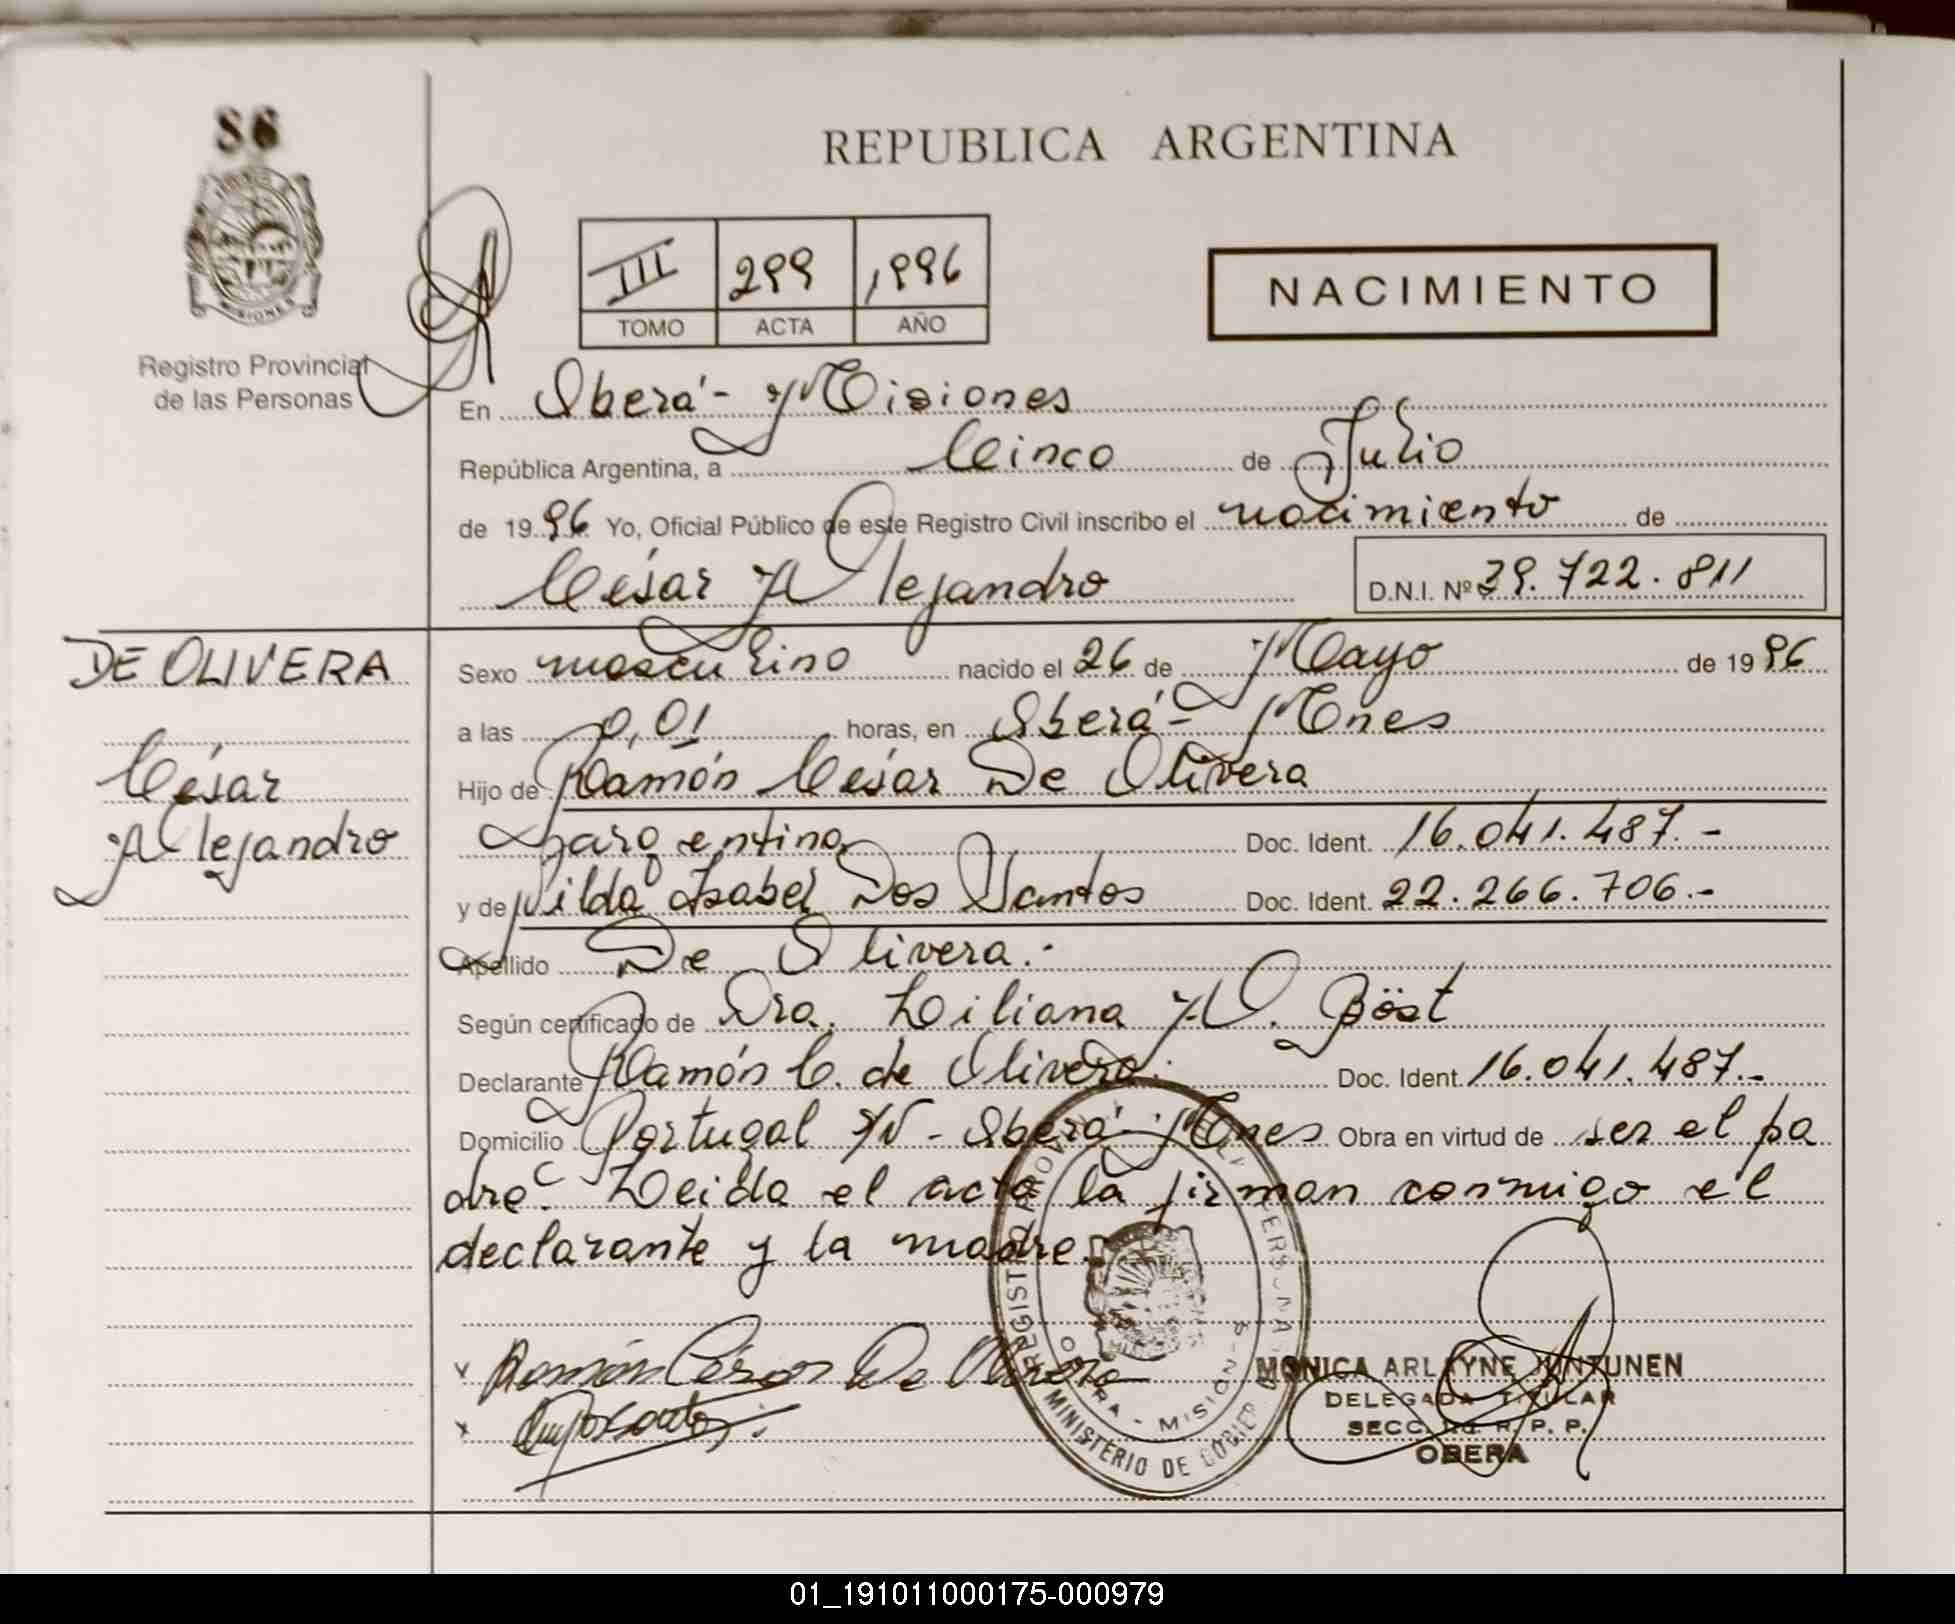 86
REPUBLICA ARGENTINA
MISIONES
Registro Provincial
de las Personas
III 299 1996
TOMO ACTA AÑO
NACIMIENTO
En Oberá - Misiones
República Argentina, a Cinco de Julio
de 1996 Yo, Oficial Público de este Registro Civil inscribo el nacimiento de
César Alejandro D.N.I. Nº 39.722.811
DE OLIVERA
César
Alejandro
Sexo masculino nacido el 26 de Mayo de 1996
a las 0,01 horas, en Oberá - Mnes
Hijo de Ramón César De Olivera
argentino Doc. Ident. 16.041.487.-
y de Nilda Isabel Dos Santos Doc. Ident. 22.266.706.-
Apellido De Olivera.-
Según certificado de Dra. Liliana N. Böst
Declarante Ramón C. de Olivera. Doc. Ident. 16.041.487.-
Domicilio Portugal S/N - Oberá - Mnes Obra en virtud de ser el pa
dre. Leida el acta la firman conmigo el
declarante y la madre.
Ramón César De Olivera
REGISTRO PROVINCIAL
OBERA - MISIONES
MINISTERIO DE GOBIERNO
MONICA ARLAYNE JUNTUNEN
DELEGADA TITULAR
SECC. R. P. P.
OBERA
01_191011000175-000979